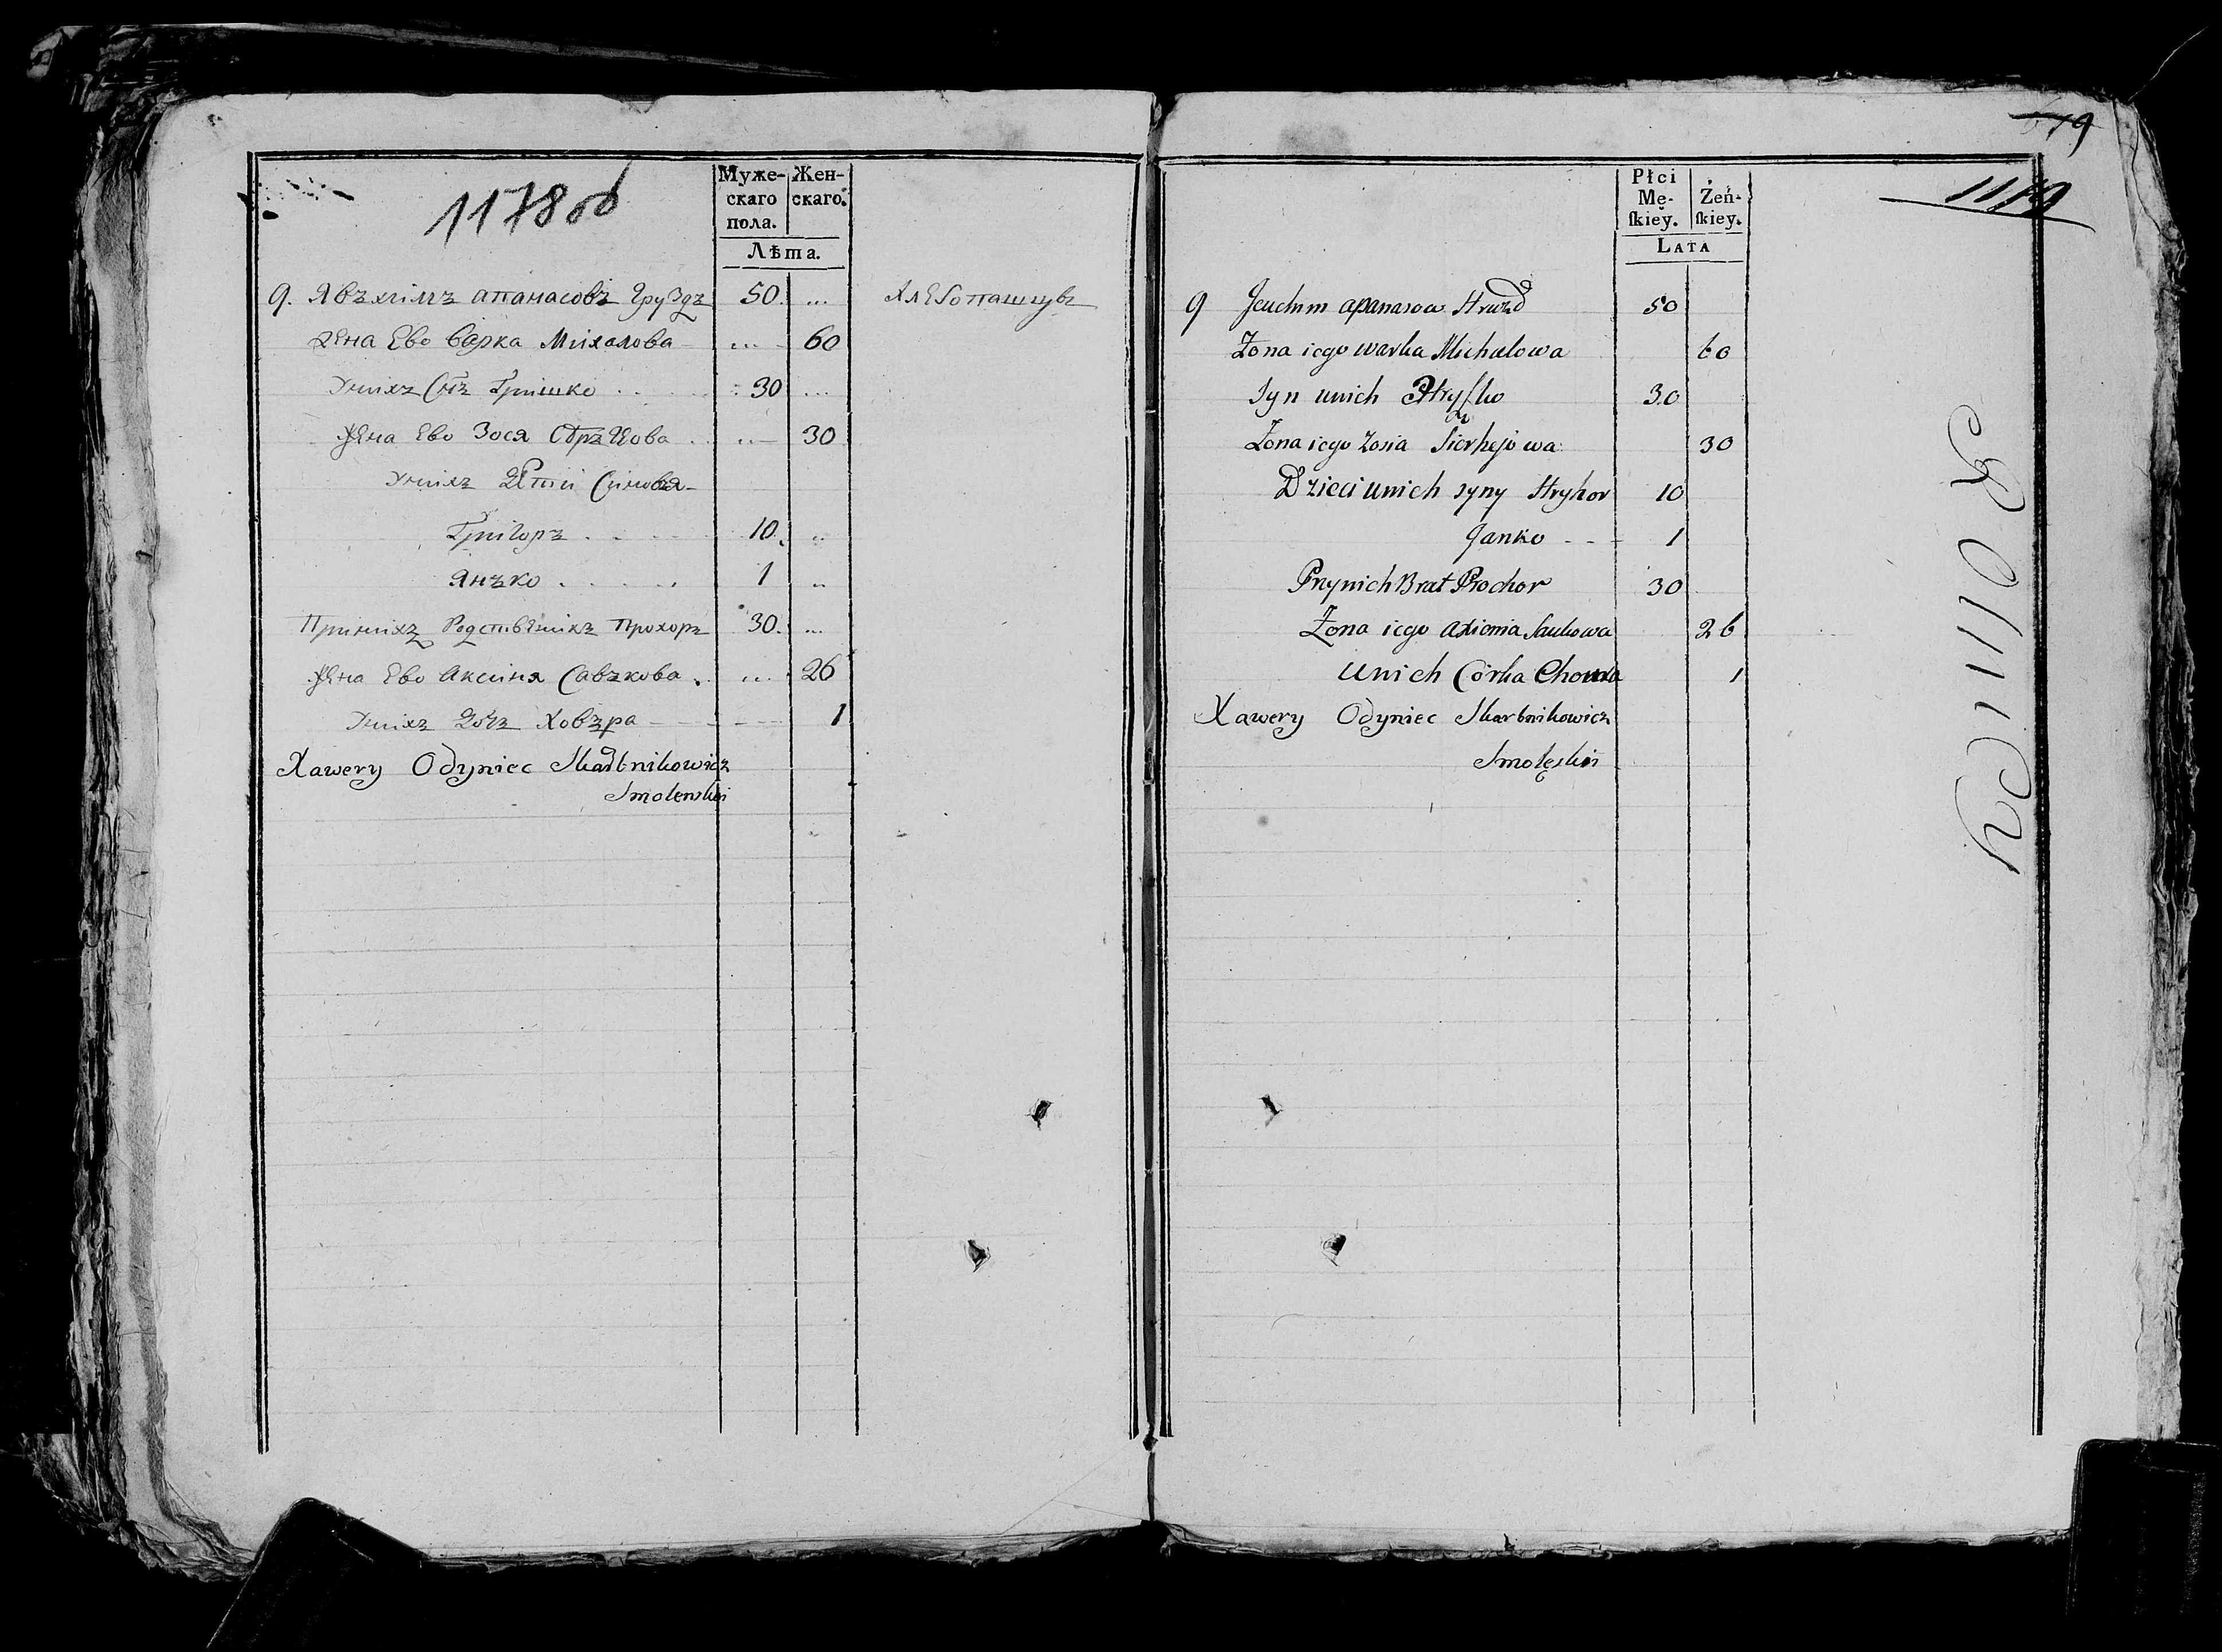 1178 об
Муже-
скаго
пола.
Жен-
скаго.
Лѣта.
9. Явъхимъ апанасовъ Груздъ 50. ... 
жена Ево варка Михалова ... 60
Унихъ Снъ Гришко 30 ...
Жена Ево Зося 30
Унихъ Дѣти Синовя
Григоръ 10. ..
Янъко 1 ..
Принихъ Родственикъ Прохоръ 30. ...
Жена Ево Аксиня Савъкова ... 26
Унихъ Дочъ Ховъра 1
Xawery Odyniec Skarbnikowicz
Smolenski
Płci
Mę-
ſkiey.
Żeń-
ſkiey.
Lata
1179
9 Jeuchim apanasow Hruzd 50
Żona iego warka Michałowa 60
Syn unich Hryſko 30
Żona iego Zosia Sierhejowa 30
Dzieci unich syny Hryhor 10
Janko - - - 1
Przynich Brat Prochor 30
Żona iego Axienia Saukowa 26
unich Córka Chowra 1
Xawery Odyniec Skarbnikowicz
Smoleski